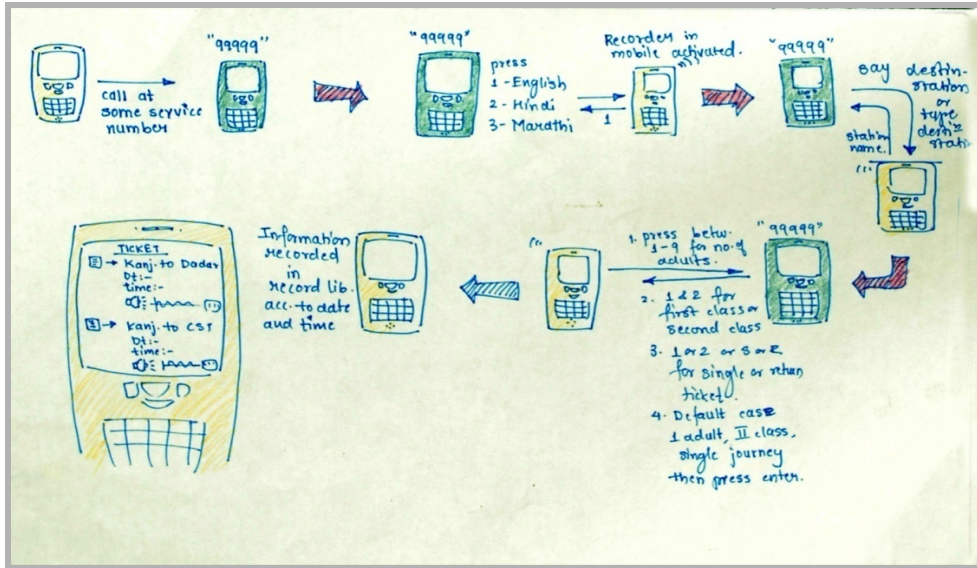 call at
some service
number
"99999"
"99999"
press
1 - English
2 - Hindi
3 - Marathi
1
Recorder in
mobile activated.
"99999"
say destin-
station
or
type
destin
station
station
name.
"99999"
1. press betw.
1-9 for no. of
adults.
2. 1 & 2 for
first class or
second class
3. 1 or 2 or S or R
for single or retun
ticket.
4. Default case
1 adult, II class,
single journey
then press enter.
Information
recorded
in
record lib.
acc. to date
and time
TICKET
→ Kanj. to Dadar
Dt:-
time:-
→ Kanj. to CST
Dt:-
time:-